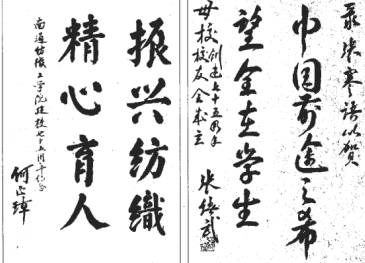 录张謇语以贺
中国前途之希
望全在学生
母校创建七十五周年
校友
张绪武
振兴纺織
精心育人
南通纺織工学院建校七十五周年纪念
何正璋